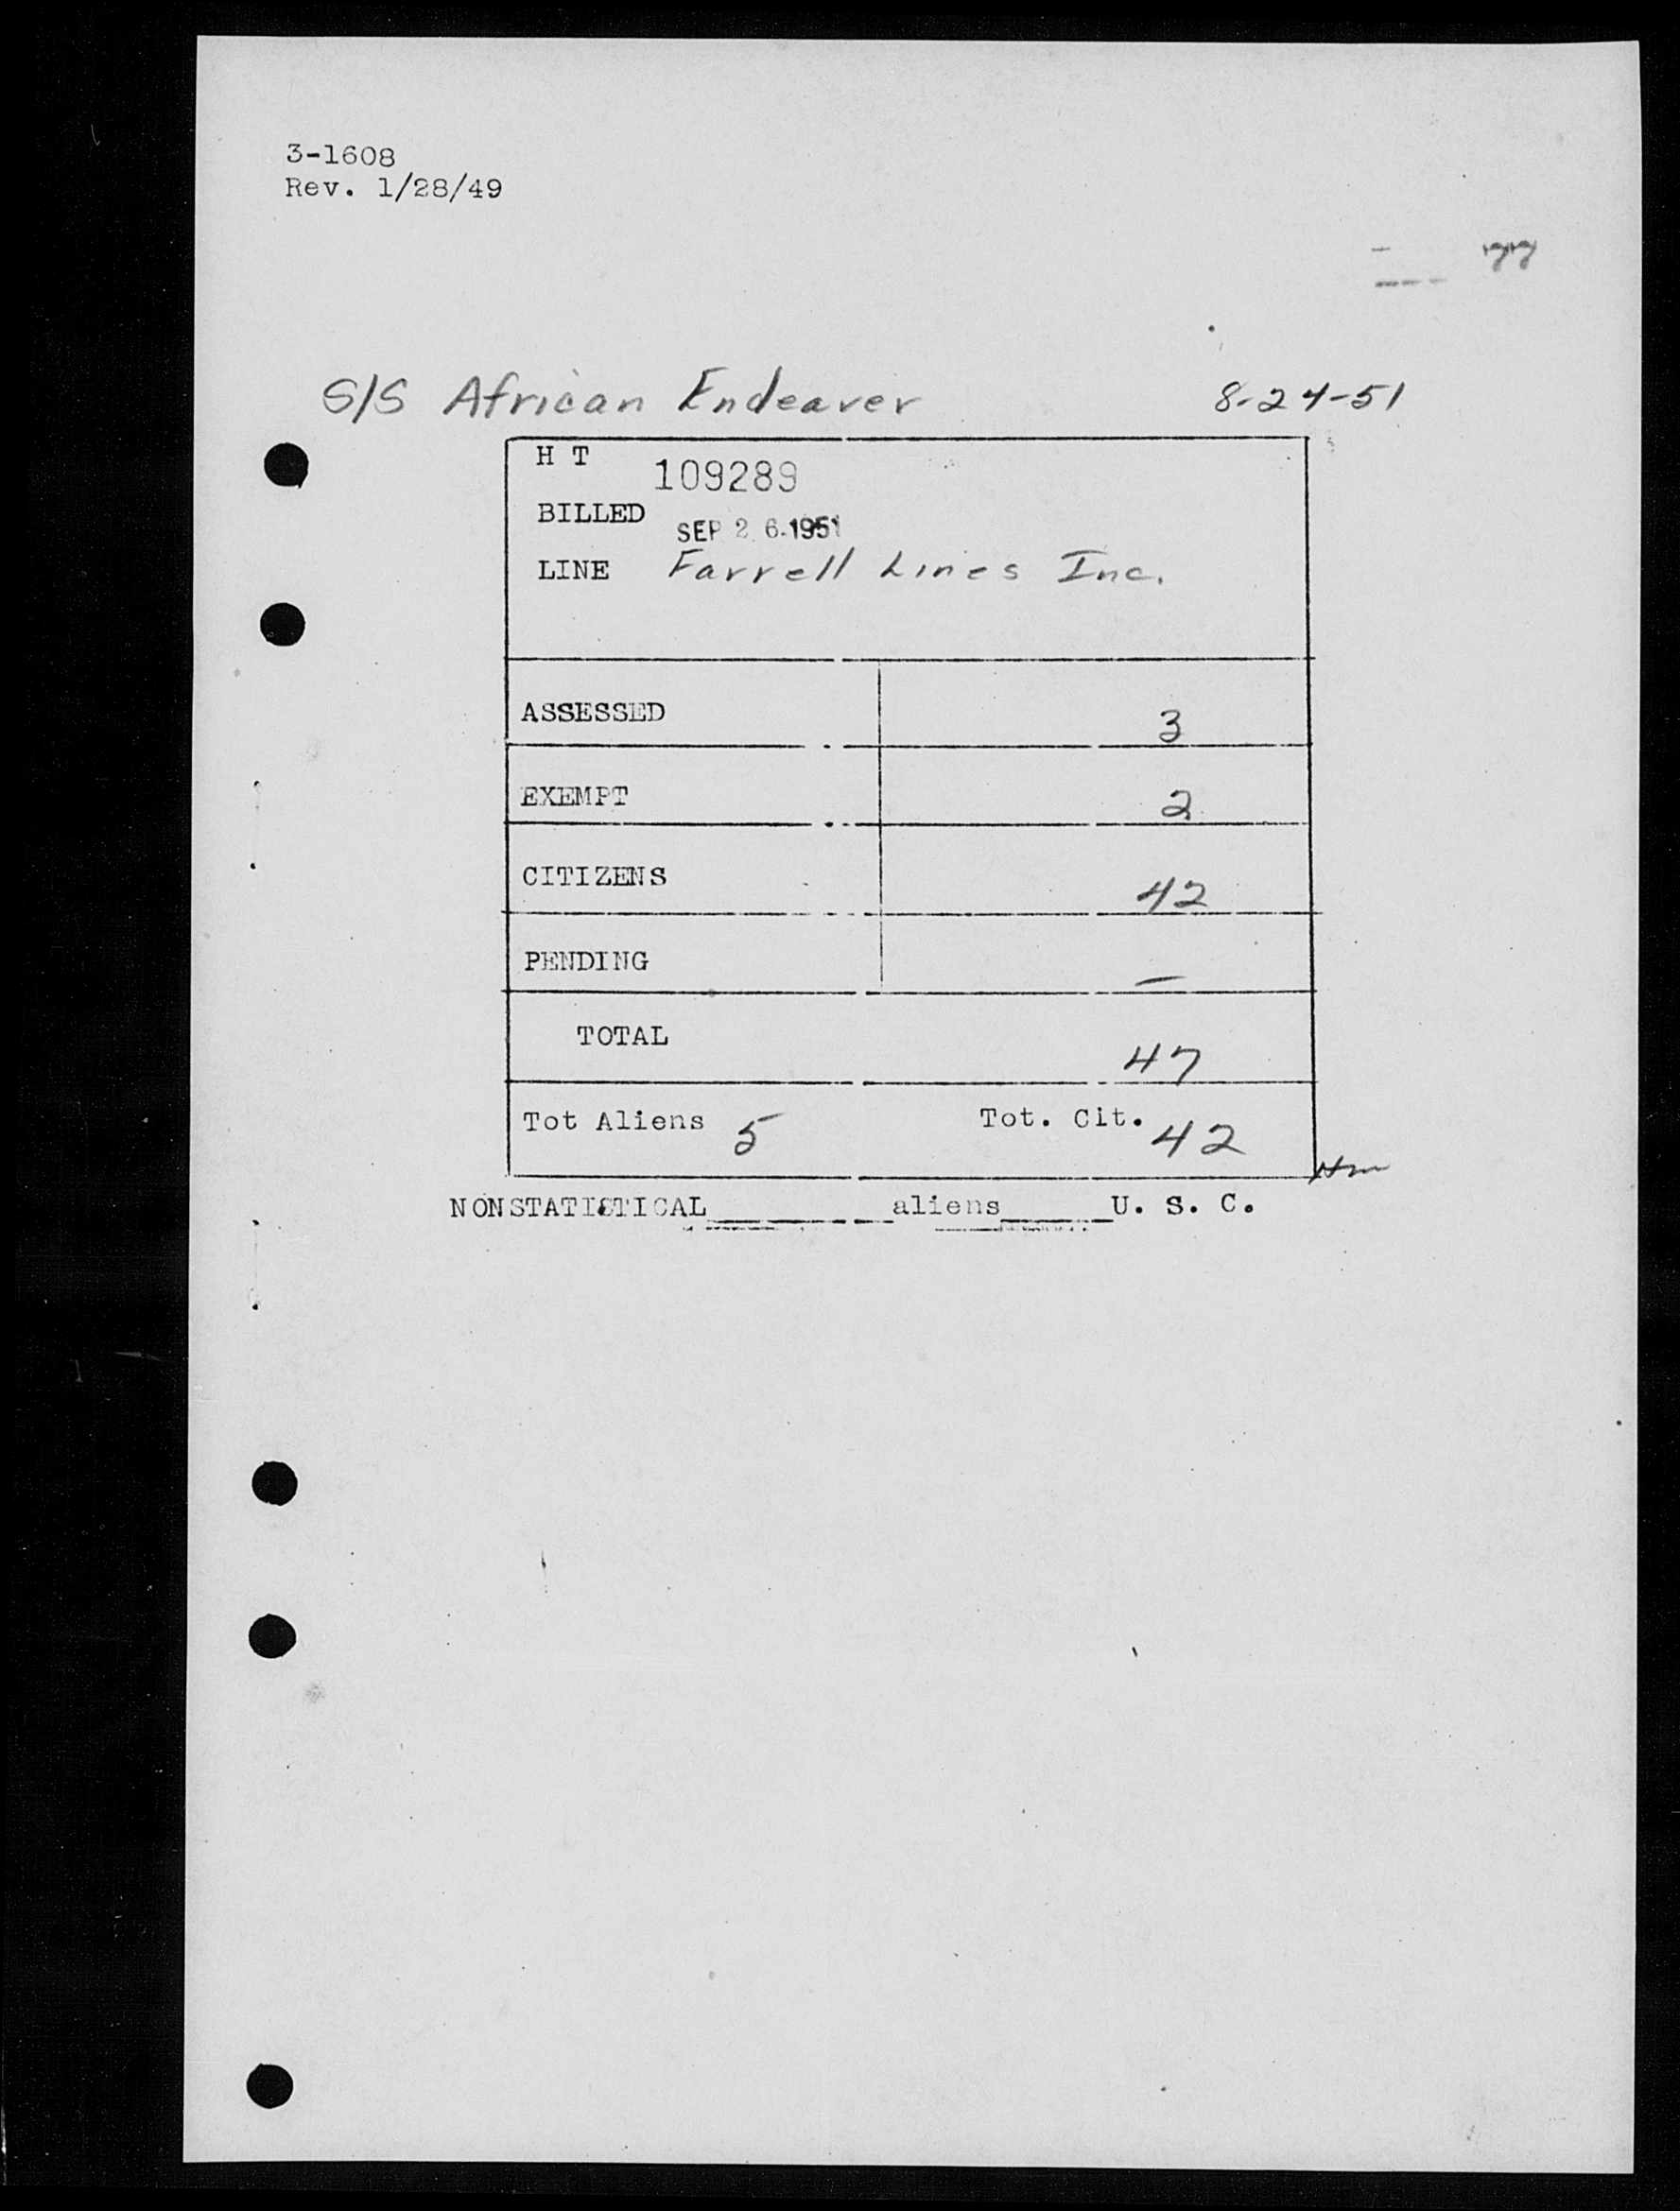 3-1608
Rev. 1/28/49
77
S/S African Endeaver 8-24-51
H T 109289
BILLED SEP 26 1951
LINE Farrell Lines Inc.
ASSESSED 3
EXEMPT 2
CITIZENS 42
PENDING —
TOTAL 47
Tot Aliens 5 Tot. Cit. 42
NONSTATISTICAL________aliens_____U. S. C.